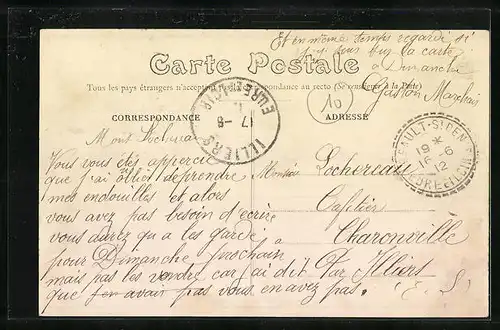 Et en même temps regarde si
la carte
à Dimanche
Gaston Marchais
Carte Postale
Tous les pays étrangers n'acceptent pas la correspondance au recto (Se renseigner à la Poste)
10
CORRESPONDANCE
ADRESSE
ILLIERS
EURE-ET-LOIR
17 -6
19 *
16 - 6
12
EURE-ET-LOIR
Vous vous êtes appercié
que j'ai oblié de prendre
mes endouilles et alors
vous avez pas besoin d'ecrire
vous aurez qu'a les garde
pour Dimanche prochain
mais pas les vendre car j'ai dit
que j'en avais pas vous en avez pas.
Monsieur Lochereau
Cafetier
Charonville
Par Illiers
(E. L)